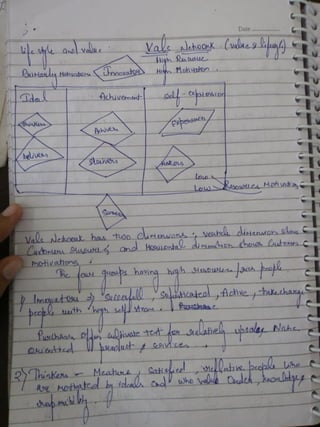 Date
Life style and value : Vals Network (value & lifestyle)
High Resource
Primary Motivation Innovators High Motivation
Ideal Achievement Self-expression
Thinkers Achiever Experiencer
Believers Strivers Makers
Low
Low Resources Motivation
Vals Network has two dimensions, vertical dimension show
Customer resources and Horizontal dimension shows Customer
motivations.
The four groups having high resources from people
1) Innovators → Successfull, Sophisticated, Active, take charge
people with high self esteem.
Purchase often cultivate test for relatively upscale Niche
oriented product & services.
2) Thinkers - Mature, Satisfied, reflective people who
are motivated by ideals and who value order, knowledge
responsibility.